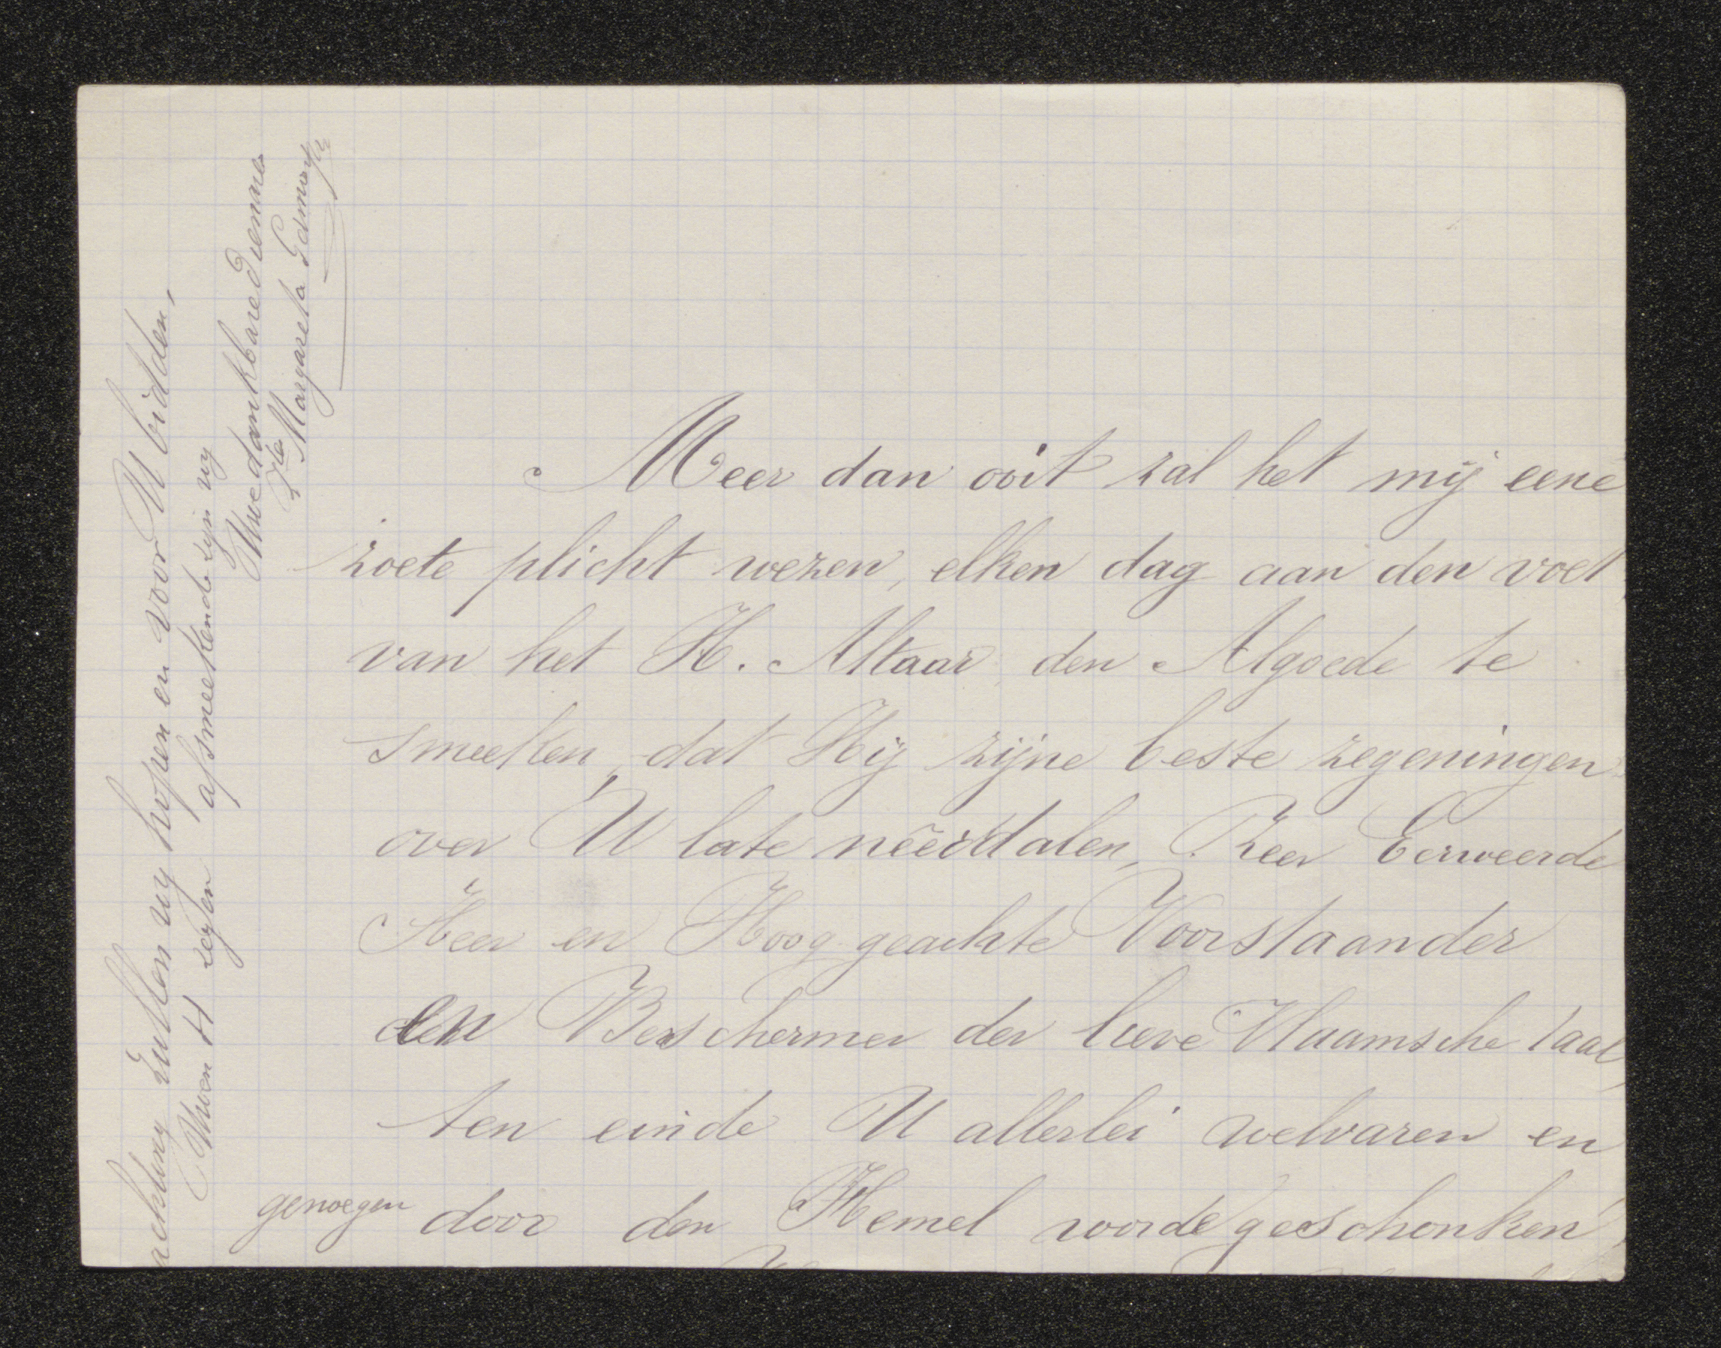 Meer dan ooit zal het mij eene
zoete plicht wezen, elken dag aan den voet
van het H. Altaar den Algoede te
smeeken, dat Hij zijne beste zegeningen
over U late neêrdalen, Zeer Eerweerde
Heer en Hooggeachte Voorstaander
en Beschermer der lieve Vlaamsche taal,
ten einde U allerlei welvaren en
genoegen door den Hemel worde geschonken
achting zullen wij hopen en voor U bidden,
Uwen H zegen afsmeekende zijn wij
Uwe dankbare Dienares
Margareta